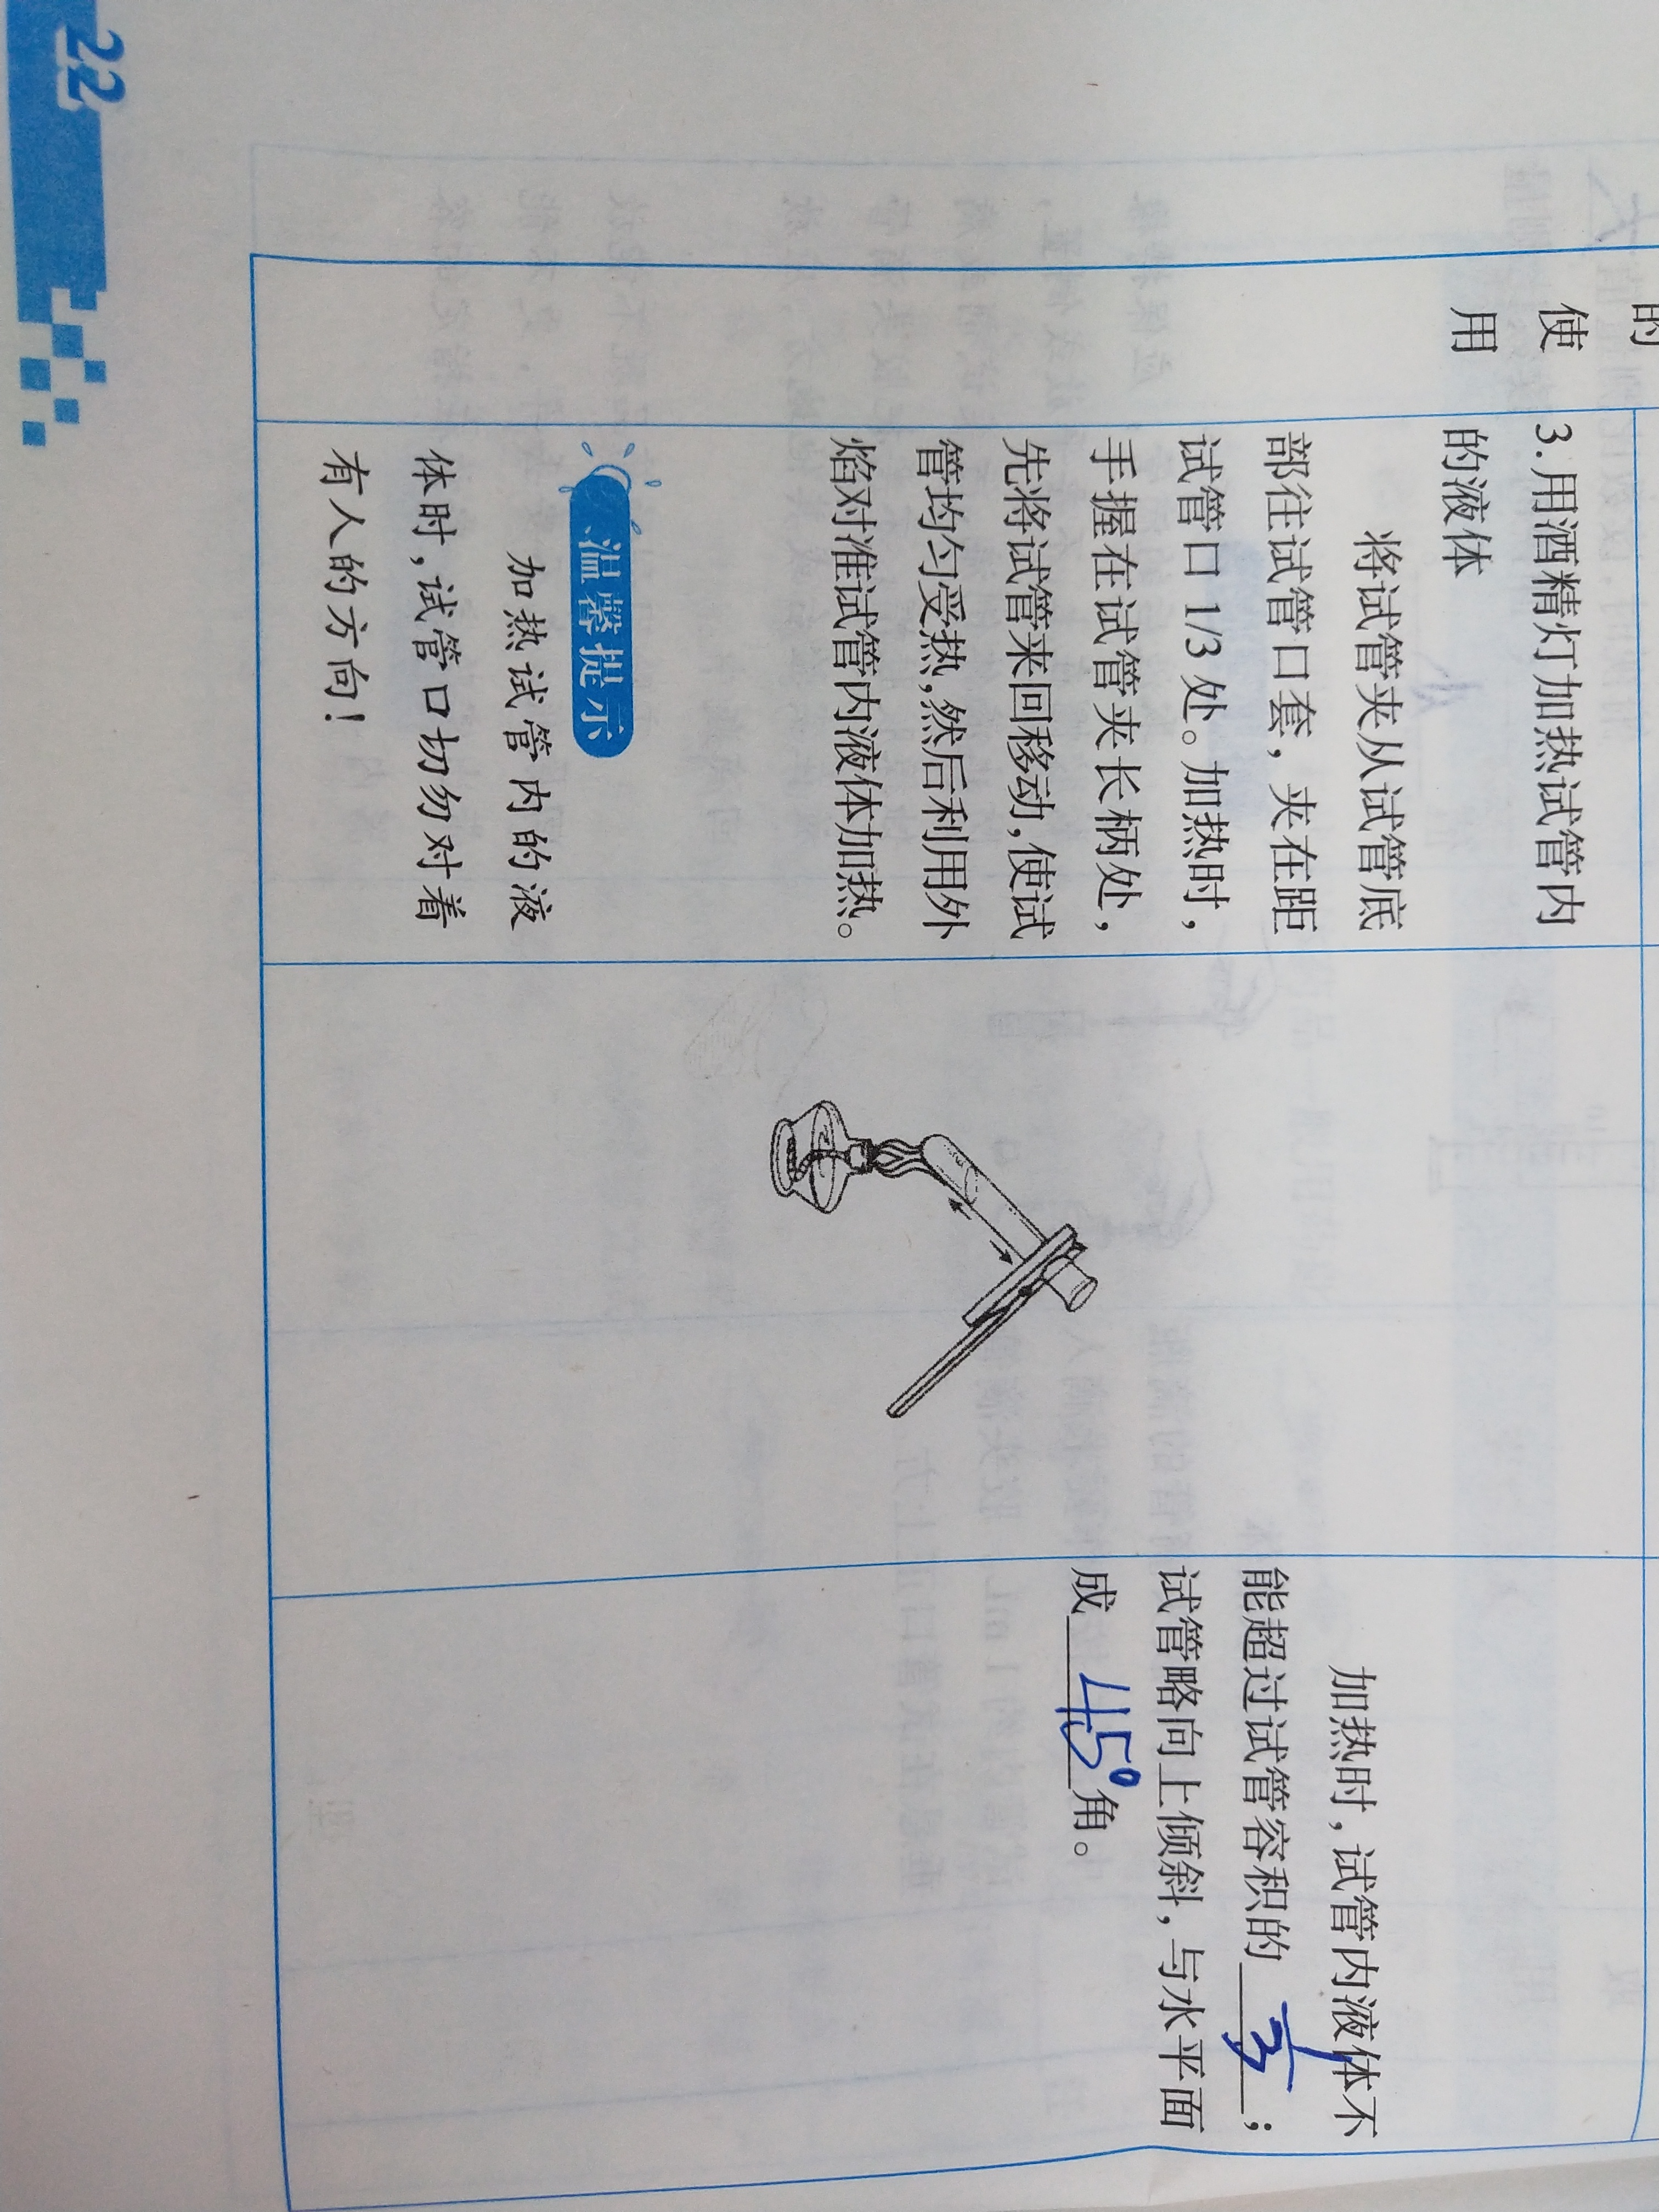 的
使
用
3.用酒精灯加热试管内
的液体
将试管夹从试管底
部往试管口套，夹在距
试管口 1/3 处。加热时，
手握在试管夹长柄处，
先将试管来回移动，使试
管均匀受热，然后利用外
焰对准试管内液体加热。
温馨提示
加热试管内的液
体时，试管口切勿对着
有人的方向！
加热时，试管内液体不
能超过试管容积的 1/3；
试管略向上倾斜，与水平面
成 45° 角。
22